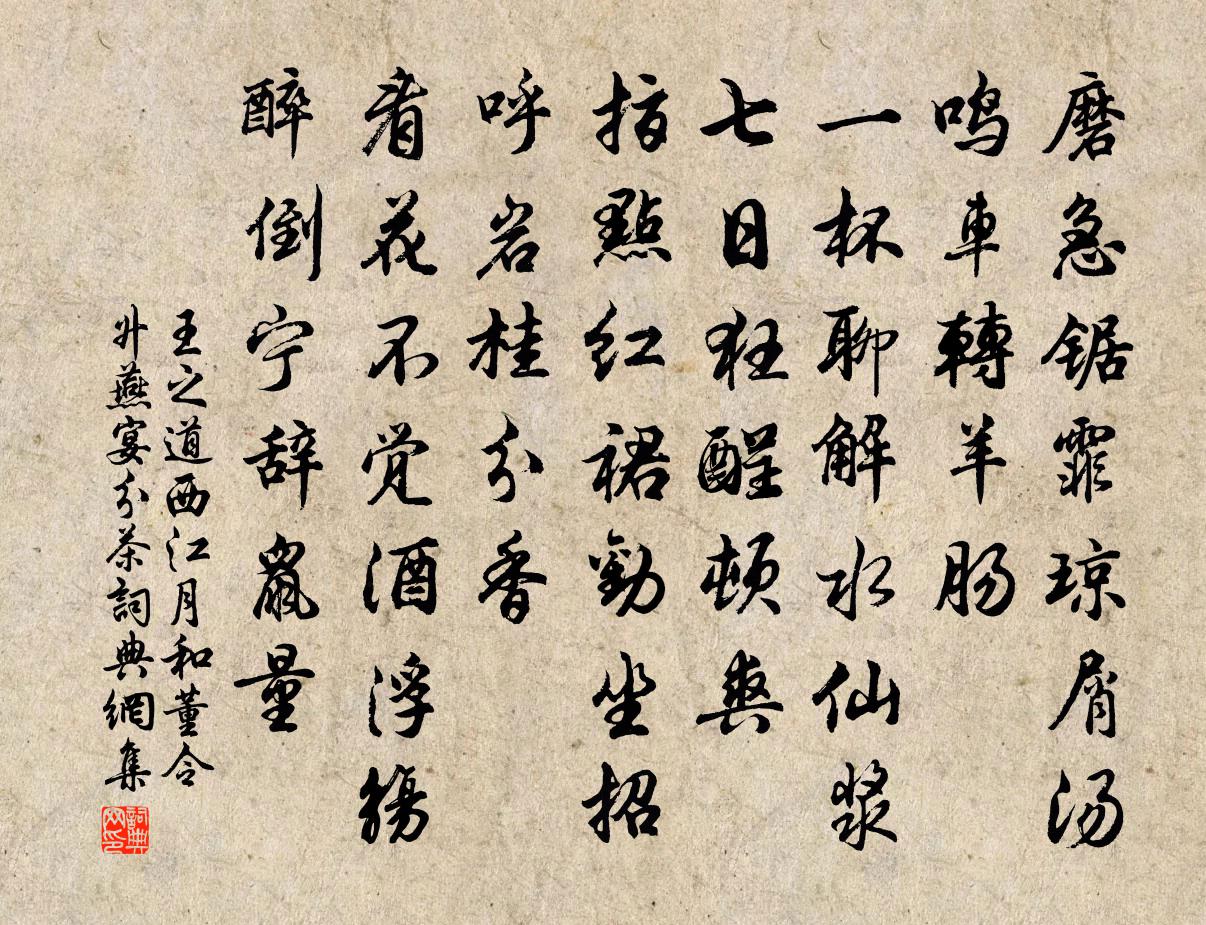 磨急锯霏琼屑汤
鸣車轉羊肠
一杯聊解水仙漿
七日狂醒顿爽
指點红裙勸坐招
呼岩桂分香
看花不觉酒浮觞
醉倒宁辞鼠量
王之道西江月和董令
升燕宴分茶詞典網集
詞典
网印